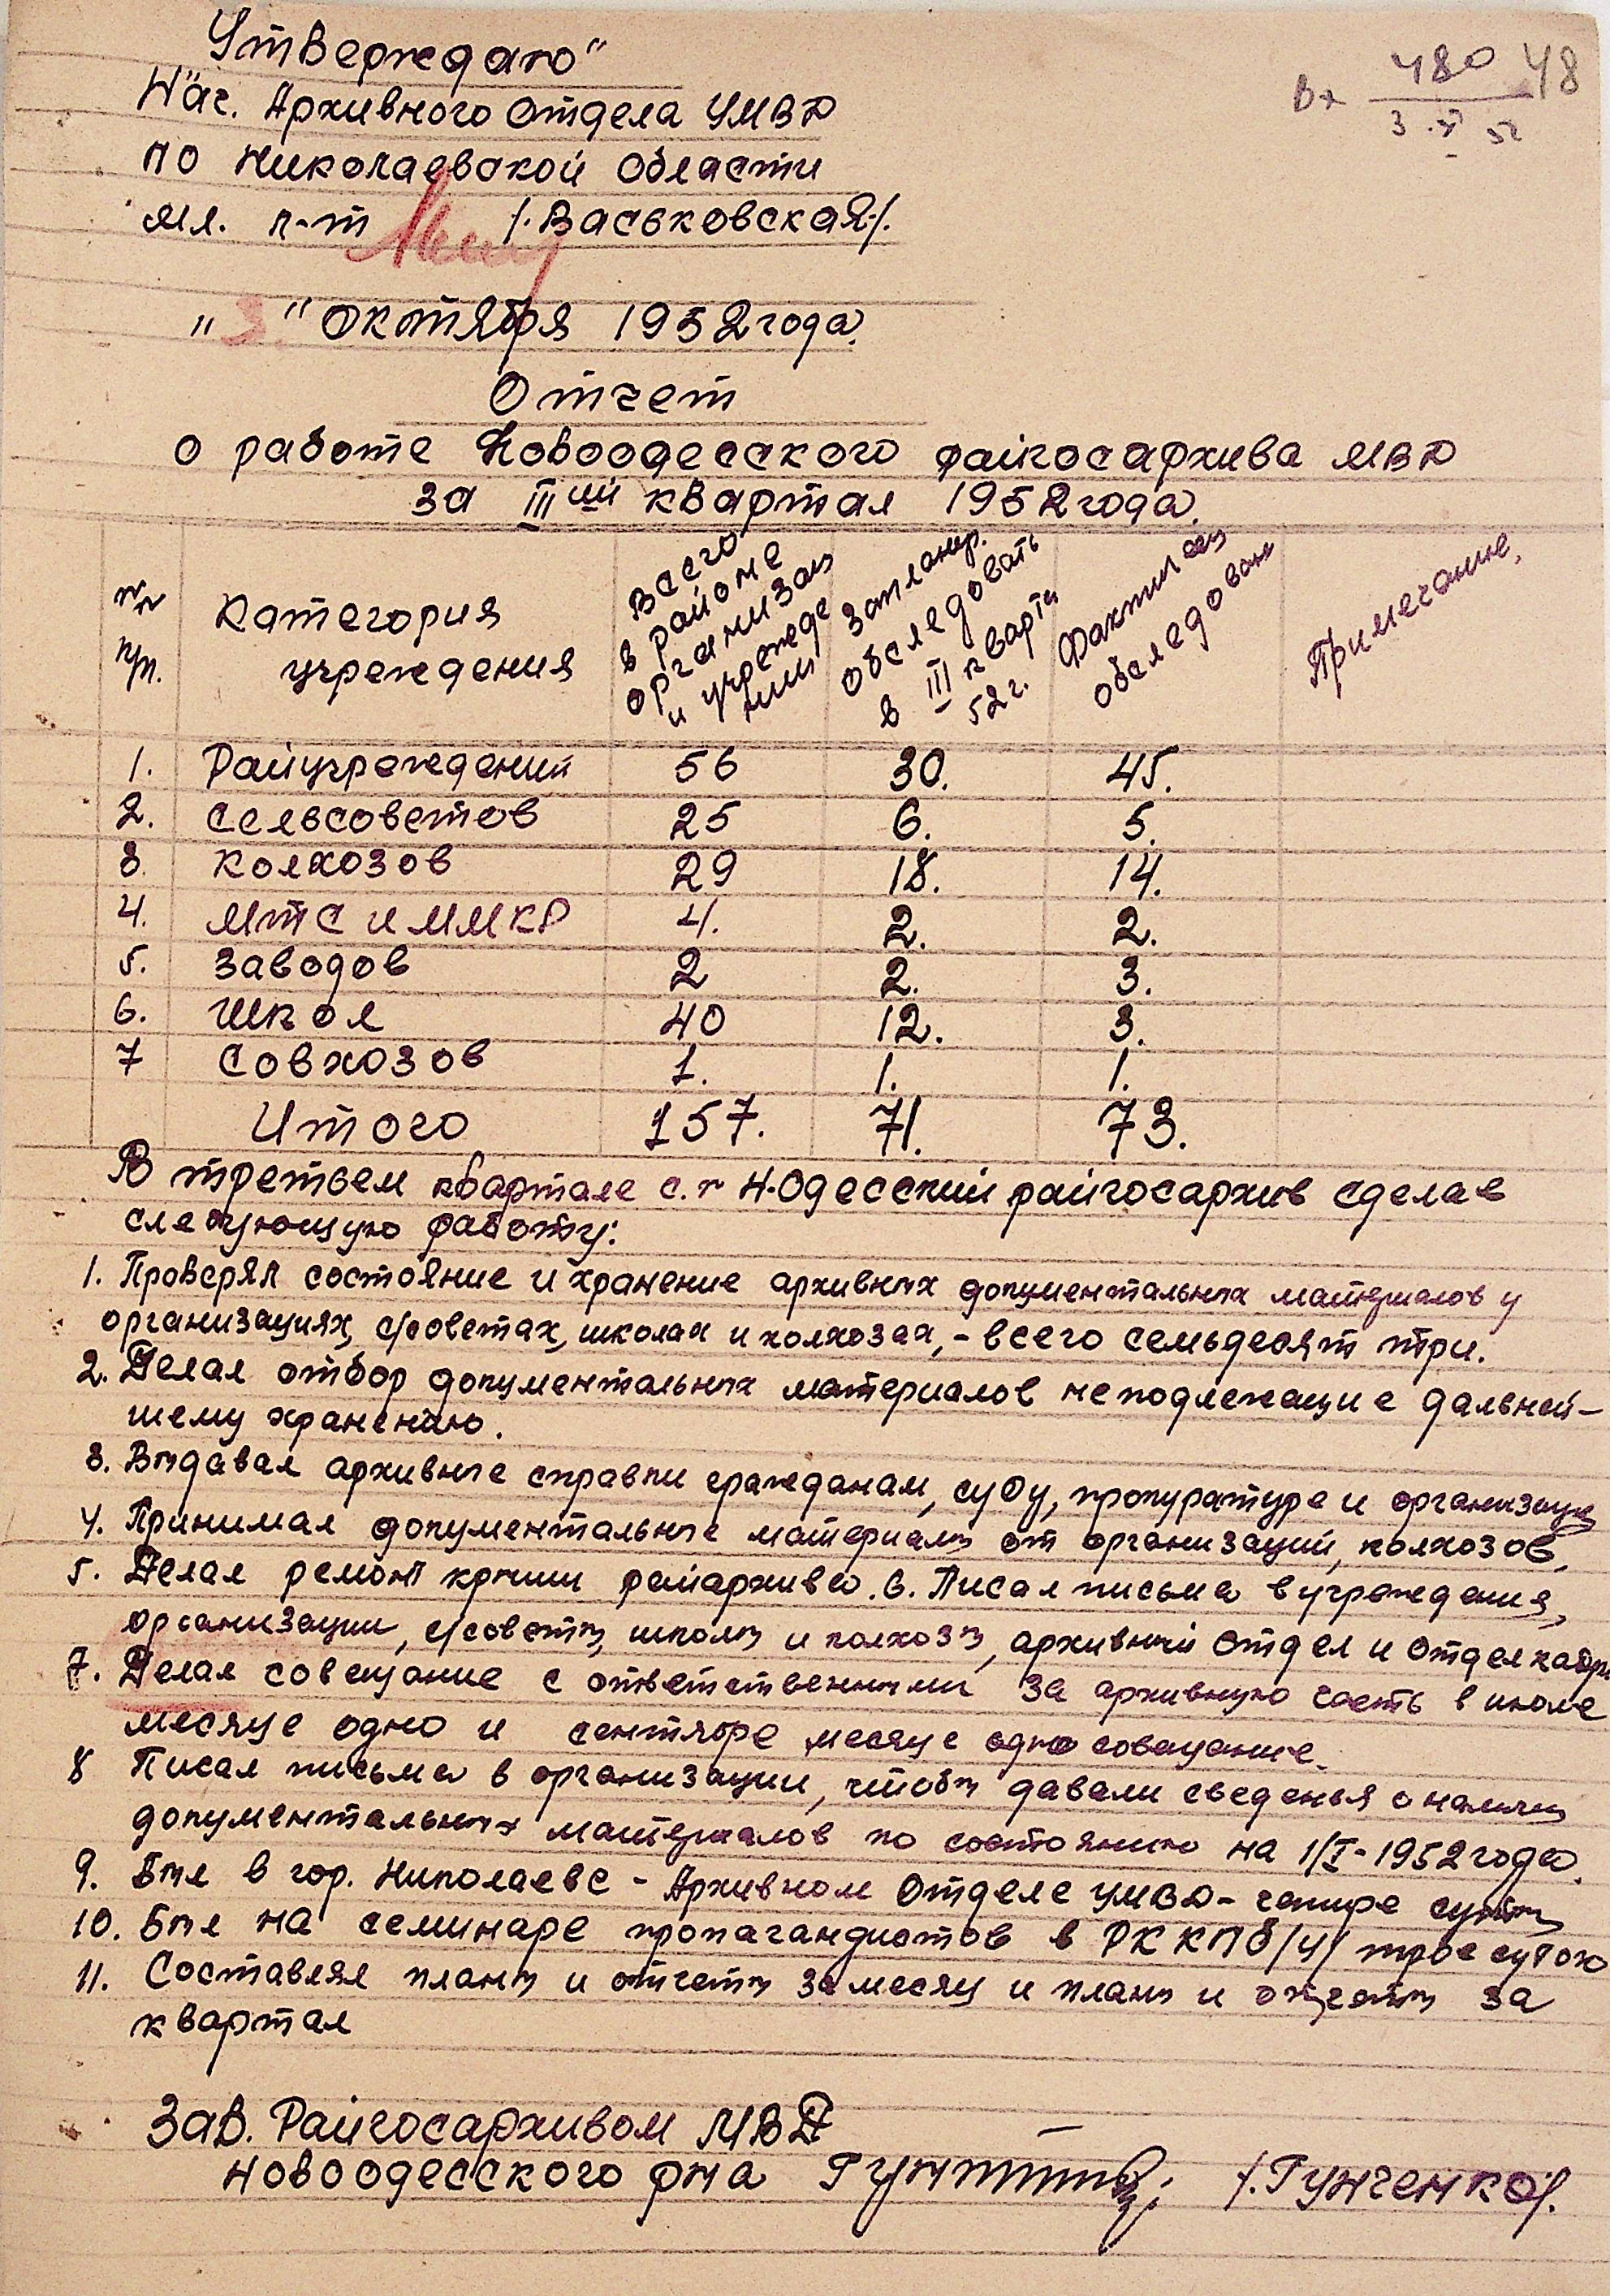 Утверждаю"
Нач. Архивного Отдела УМВД
по Николаевской Области
мл. л-т /.Васьковская./.
"3" Октября 1952 года.
Вх 480 48
3.X 52
Отчет
о работе Новоодесского райгосархива МВД
за III ий квартал 1952 года.
пп п/п. Категория учреждения Всего в районе организац и учрежде ний Запланир. обследовать в III кварта 52 г. Фактичес обследован Примечание.
1. Райучреждений 56 30. 45.
2. Сельсоветов 25 6. 5.
3. Колхозов 29 18. 14.
4. МТС и ММКС 4. 2. 2.
5. Заводов 2 2. 3.
6. Школ 40 12. 3.
7 Совхозов 1. 1. 1.
Итого 157. 71. 73.
В третьем квартале с.г Н.Одесский райгосархив сделав
следующую работу:
1. Проверял состояние и хранение архивных документальных материалов у
организациях, с/советах, школах и колхозах, - всего семьдесят три.
2. Делал отбор документальных материалов неподлежащие дальней-
шему хранению.
3. Выдавал архивные справки гражданам, суду, прокуратуре и организац
4. Принимал документальные материалы от организаций, колхозов,
5. Делал ремонт крыши райархива. 6. Писал письма в учреждения,
организации, с/советы, школы и колхозы, архивный Отдел и Отдел кадр
7. Делал совещание с ответственными за архивную часть в июле
месяце одно и сентябре месяце одно совещание.
8 Писал письма в организации, чтобы давали сведенья о наличи
документальных материалов по состоянию на 1/I-1952 года.
9. Был в гор. Николаеве - Архивном Отделе УМВД - четыре сутки
10. Был на семинаре пропагандистов в РК КПб/У/ трое суток
11. Составлял планы и отчеты за месяц и планы и отчеты за
квартал
Зав. Райгосархивом МВД
Новоодесского рна /.Гунченко/.